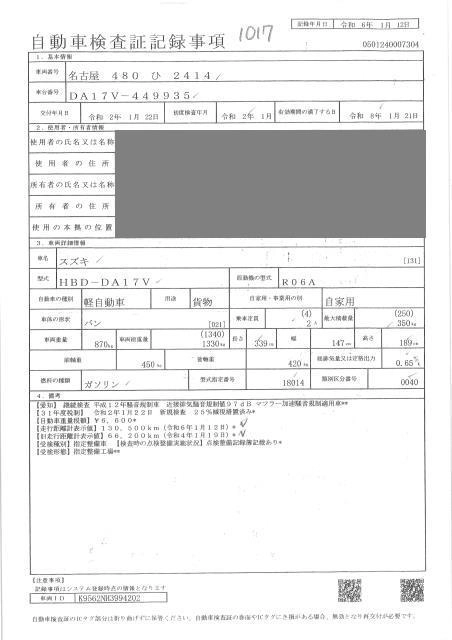 記録年月日 令和 6年 1月 12日
自動車検査証記録事項 1017
0501240007304
1. 基本情報
車両番号 名古屋 480 ひ 2414
車台番号 DA17V-449935
交付年月日 令和 2年 1月 22日 初度検査年月 令和 2年 1月 有効期間の満了する日 令和 8年 1月 21日
2. 使用者・所有者情報
使用者の氏名又は名称
使用者の住所
所有者の氏名又は名称
所有者の住所
使用の本拠の位置
3. 車両詳細情報
車名 スズキ [131]
型式 HBD-DA17V 原動機の型式 R06A
自動車の種別 軽自動車 用途 貨物 自家用・事業用の別 自家用
車体の形状 バン [021] 乗車定員 (4) 2人 最大積載量 (250) 350kg
車両重量 870kg 車両総重量 (1340) 1330kg 長さ 339cm 幅 147cm 高さ 189cm
前軸重 450kg 後軸重 420kg 総排気量又は定格出力 0.65
燃料の種類 ガソリン 型式指定番号 18014 類別区分番号 0040
4. 備考
【愛知】 継続検査 平成12年騒音規制車 近接排気騒音規制値97dB マフラー加速騒音規制適用車**
【31年度税制】 令和2年1月22日 新規検査 25%減税措置済み*
【自動車重量税額】¥6,600*
【走行距離計表示値】130,500km(令和6年1月12日)*
【旧走行距離計表示値】66,200km(令和4年1月19日)*
【受検種別】指定整備車 【検査時の点検整備実施状況】点検整備記録簿記載あり*
【受検形態】指定整備工場**
【注意事項】
記録事項はシステム登録時点の情報となります
車両ID K9562NH3994202
自動車検査証のICタグ部分は折り曲げずに保管ください。自動車検査証の券面やICタグにき損がある場合、無効となり再交付が必要です。